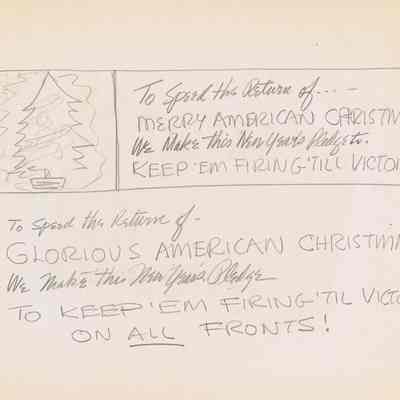 To Speed the Return of....-
MERRY AMERICAN CHRISTM
We Make this New Year's Pledge to.
KEEP 'EM FIRING 'TILL VICTO
To Speed the Return of-
GLORIOUS AMERICAN CHRISTM
We Make this New Year's Pledge
TO KEEP 'EM FIRING 'TIL VICTO
ON ALL FRONTS!